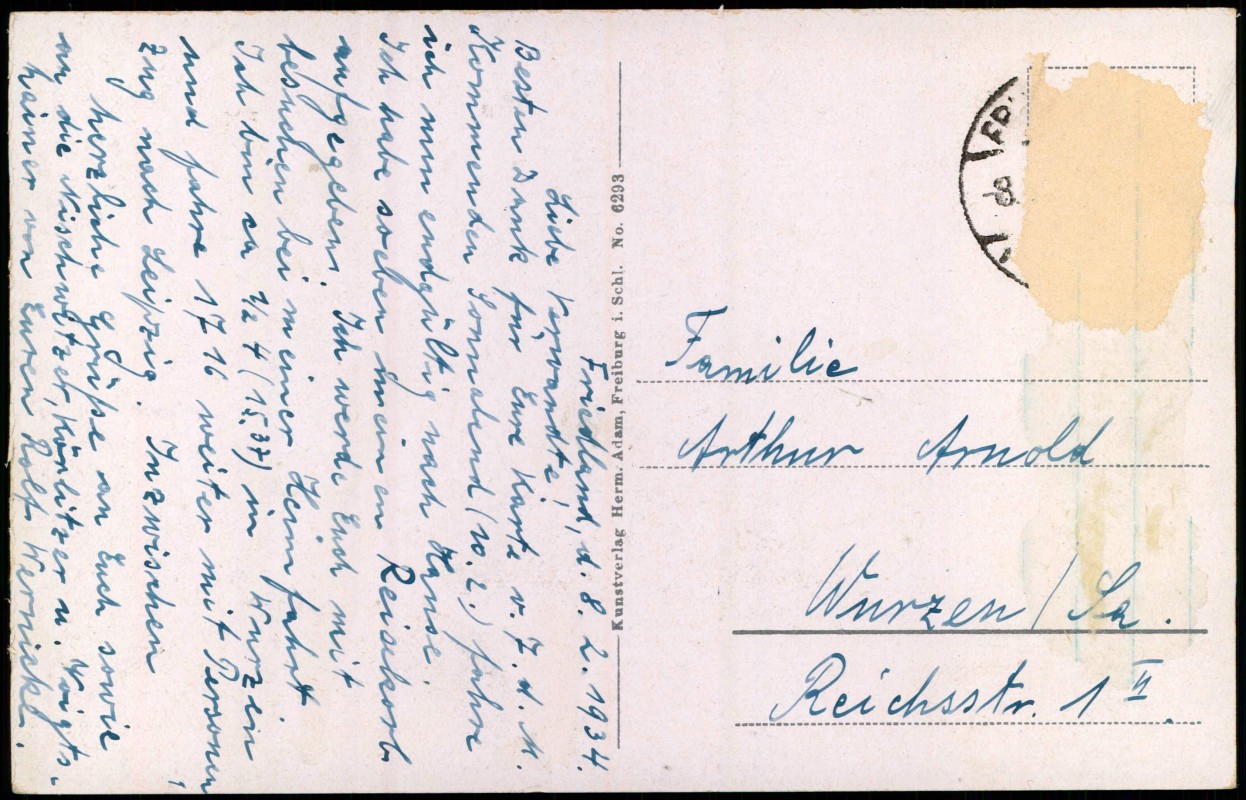 Friedland, d. 8. 2. 1934.
Liebe Verwandte!
Besten Dank für Eure Karte v. 7. d. M.
Kommenden Sonnabend (10. 2.) fahre
ich nun endgültig nach Hause.
Ich habe soeben mein en Reisekorb
aufgegeben. Ich werde Euch mit
besuchen bei meiner Heimfahrt
Ich bin ca ½ 4 (15.37) in Wurzen
und fahre 17 16 weiter mit Personen
zug nach Leipzig. Inzwischen
herzliche Grüße an Euch sowie
an die Nischwitzer, Könlitzer u. Voigts-
hainer von Euren Rolf Wernicke.
Kunstverlag Herm. Adam, Freiburg i. Schl. No. 6293
FR
8
Familie
Arthur Arnold
Wurzen / Sa.
Reichsstr. 1 II.